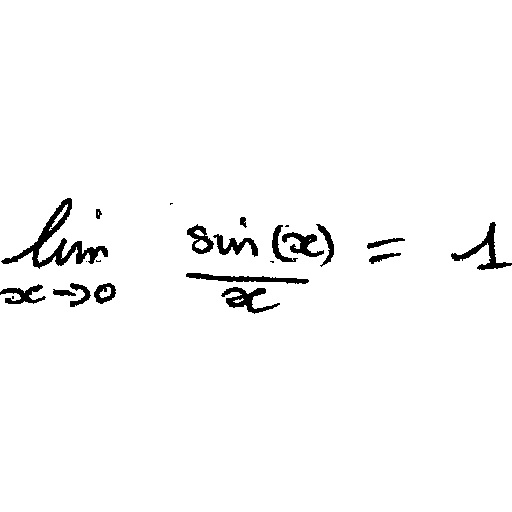 \lim_{x \to 0} \frac{\sin(x)}{x} = 1